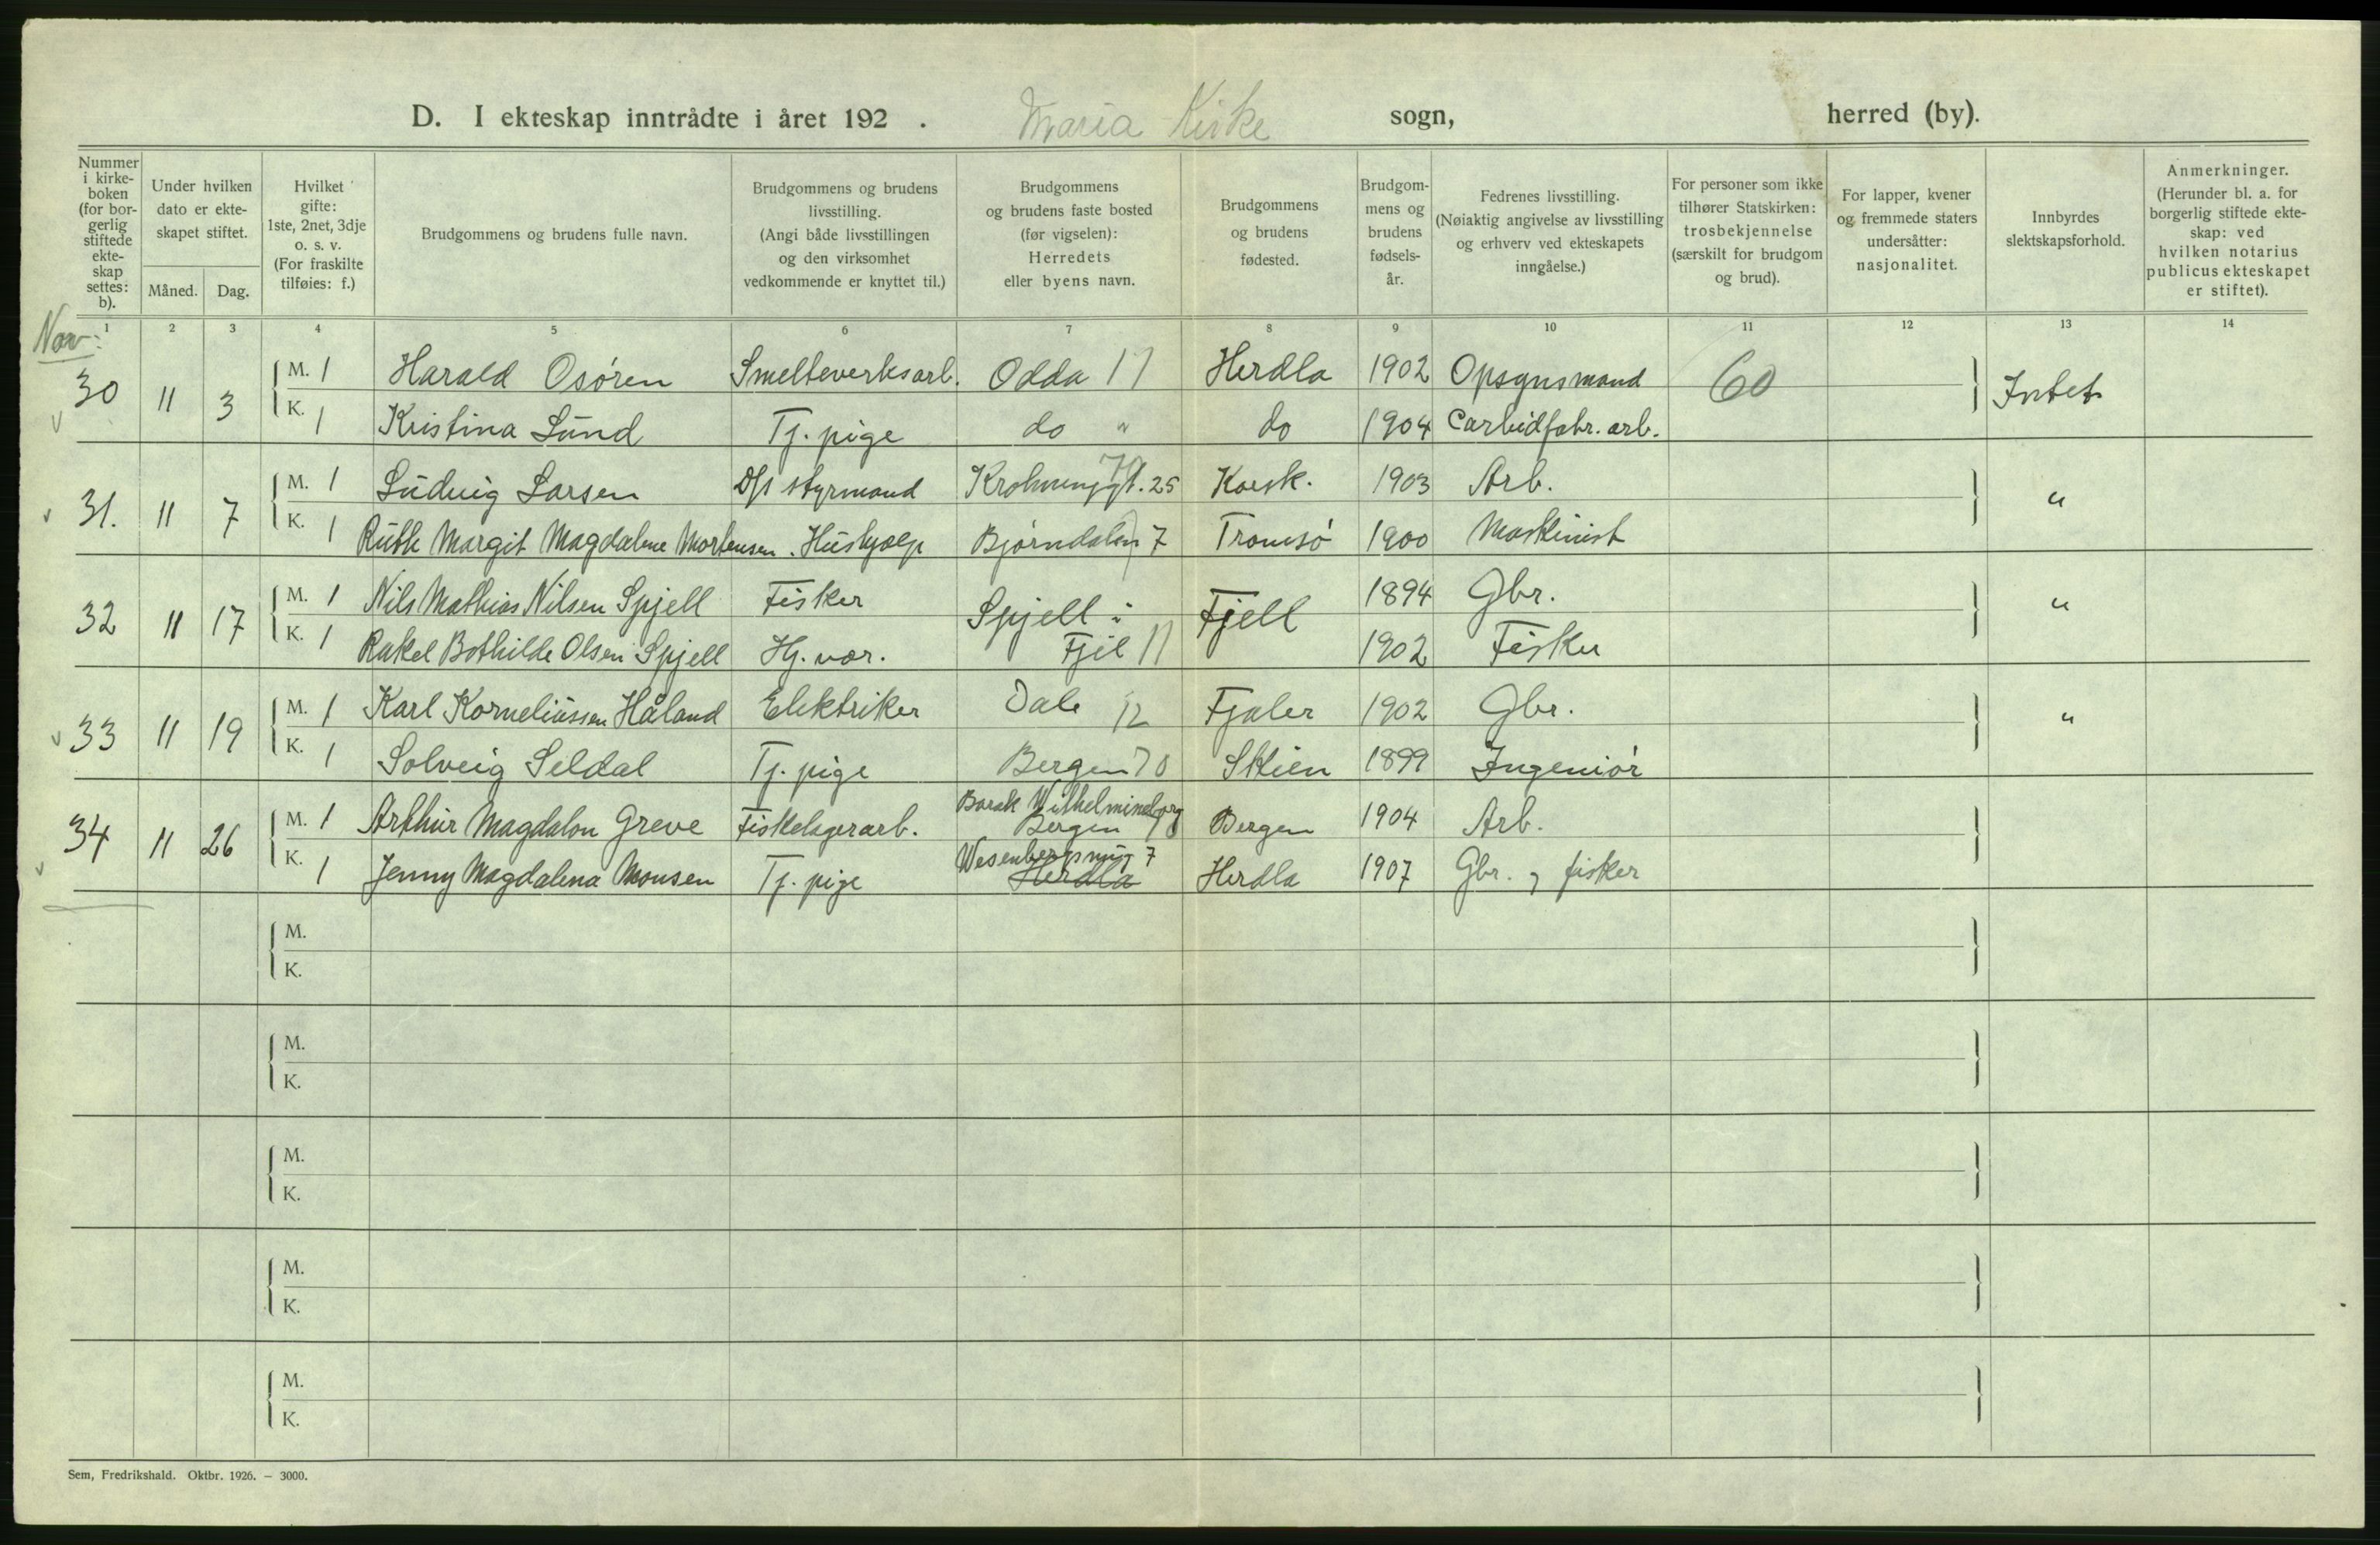 D. I ekteskap inntrådte i året 192 . Maria Kirke sogn, herred (by).
Nummer i kirkeboken (for borgerlig stiftede ekteskap settes: b).
Under hvilken dato er ekteskapet stiftet.
Måned. Dag.
Hvilket gifte: 1ste, 2net, 3dje o. s. v. (For fraskilte tilføies: f.)
Brudgommens og brudens fulle navn.
Brudgommens og brudens livsstilling. (Angi både livsstillingen og den virksomhet vedkommende er knyttet til.)
Brudgommens og brudens faste bosted (før vigselen): Herredets eller byens navn.
Brudgommens og brudens fødested.
Brudgommens og brudens fødselsår.
Fedrenes livsstilling. (Nøiaktig angivelse av livsstilling og erhverv ved ekteskapets inngåelse.)
For personer som ikke tilhører Statskirken: trosbekjennelse (særskilt for brudgom og brud).
For lapper, kvener og fremmede staters undersåtter: nasjonalitet.
Innbyrdes slektskapsforhold.
Anmerkninger. (Herunder bl. a. for borgerlig stiftede ekteskap: ved hvilken notarius publicus ekteskapet er stiftet).
1 2 3 4 5 6 7 8 9 10 11 12 13 14
Nov:
30 11 3 M. 1 Harald Osøren Smelteverksarb. Odda 11 Herdla 1902 Opsynsmand 60 Intet
K. 1 Kristina Lund Tj. pige do " do 1904 Carbidfabr. arb.
31. 11 7 M. 1 Ludvig Larsen D/s styrmand 25 Korsk. 1903 Arb. "
K. 1 Ruth Margit Magdalene Mortensen. Hushjælp Bjørndalen 7 Tromsø 1900 Maskinist
32 11 17 M. 1 Nils Mathias Nilsen Spjell Fisker Spjell i Fjell 1894 Gbr. "
K. 1 Rakel Bothilde Olsen Spjell Hj. vær. Fjel 11 1902 Fisker
33 11 19 M. 1 Karl Korneliussen Håland Elektriker Dale 12 Fjaler 1902 Gbr. "
K. 1 Solveig Seldal Tj. pige Bergen 70 Skien 1899 Ingeniør
34 11 26 M. 1 Arthur Magdalon Greve Fiskelagerarb. Barak Wilhelmineborg
Bergen 70 Bergen 1904 Arb.
K. 1 Jenny Magdalena Monsen Tj. pige Wesenbergsmug 7
Herdla Herdla 1907 Gbr. og fisker
M.
K.
M.
K.
M.
K.
M.
K.
M.
K.
Sem, Fredrikshald. Oktbr. 1926. – 3000.